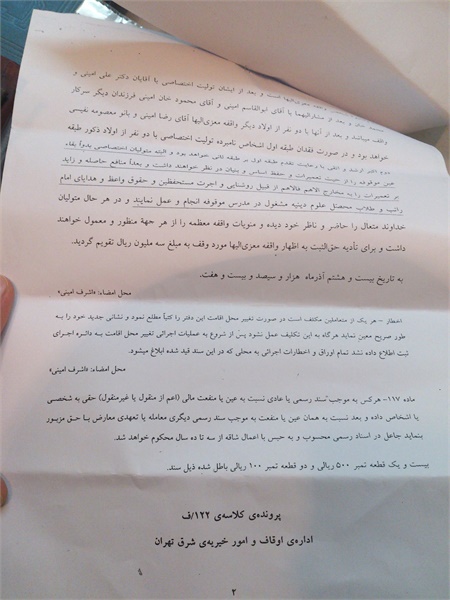 معزی‌الیها است و بعد از ایشان تولیت اختصاصی با آقایان دکتر علی امینی و
مشارالیهما با آقای ابوالقاسم امینی و آقای محمود خان امینی فرزندان دیگر سرکار
وقف میباشد و بعد از آنها با دو نفر از اولاد دیگر واقفه معزی‌الیها آقای رضا امینی و بانو معصومه نفیسی
خواهد بود و در صورت فقدان طبقه اول اشخاص نامبرده تولیت اختصاصی با دو نفر از اولاد ذکور طبقه
دوم اکبر ارشد و اتقی با رعایت تقدم طبقه اول بر طبقه ثانی خواهد بود و البته متولیان اختصاصی بدواً بقاء
عین موقوفه را و حیث تعمیرات و حفظ اساس و بنیان در نظر خواهند داشت و بعداً منافع حاصله و زاید
بر تعمیرات را به مخارج الاهم فالاهم از قبیل روشنایی و اجرت مستحفظین و حقوق واعظ و هدایای امام
راتب و طلاب محصل علوم دینیه مشغول در مدرس موقوفه انجام و عمل نمایند و در هر حال متولیان
خداوند متعال را حاضر و ناظر خود دیده و منویات واقفه معظمه را از هر جهة منظور و معمول خواهند
داشت و برای تأدیه حق‌الثبت به اظهار واقفه معزی‌الیها مورد وقف به مبلغ سه ملیون ریال تقویم گردید.
به تاریخ بیست و هشتم آذرماه هزار و سیصد و بیست و هفت.
محل امضاء: «اشرف امینی»
اخطار – هر یک از متعاملین مکلف است در صورت تغییر محل اقامت این دفتر را کتباً مطلع نمود و نشانی جدید خود را به
طور صریح معین نماید هرگاه به این تکلیف عمل نشود پس از شروع به عملیات اجرائی تغییر محل اقامت به دائره اجرای
ثبت اطلاع داده نشد تمام اوراق و اخطارات اجرائی به محلی که در این سند قید شده ابلاغ میشود.
محل امضاء: «اشرف امینی»
ماده ۱۱۷- هرکس به موجب سند رسمی یا عادی نسبت به عین یا منفعت مالی (اعم از منقول یا غیرمنقول) حقی به شخصی
یا اشخاص داده و بعد نسبت به همان عین یا منفعت به موجب سند رسمی دیگری معامله یا تعهدی معارض با حق مزبور
بنماید جاعل در اسناد رسمی محسوب و به حبس با اعمال شاقه از سه تا ده سال محکوم خواهد شد.
بیست و یک قطعه تمبر ۵۰۰ ریالی و دو قطعه تمبر ۱۰۰ ریالی باطل شده ذیل سند.
پرونده‌ی کلاسه‌ی ۱۲۲/ف
اداره‌ی اوقاف و امور خیریه‌ی شرق تهران
۲